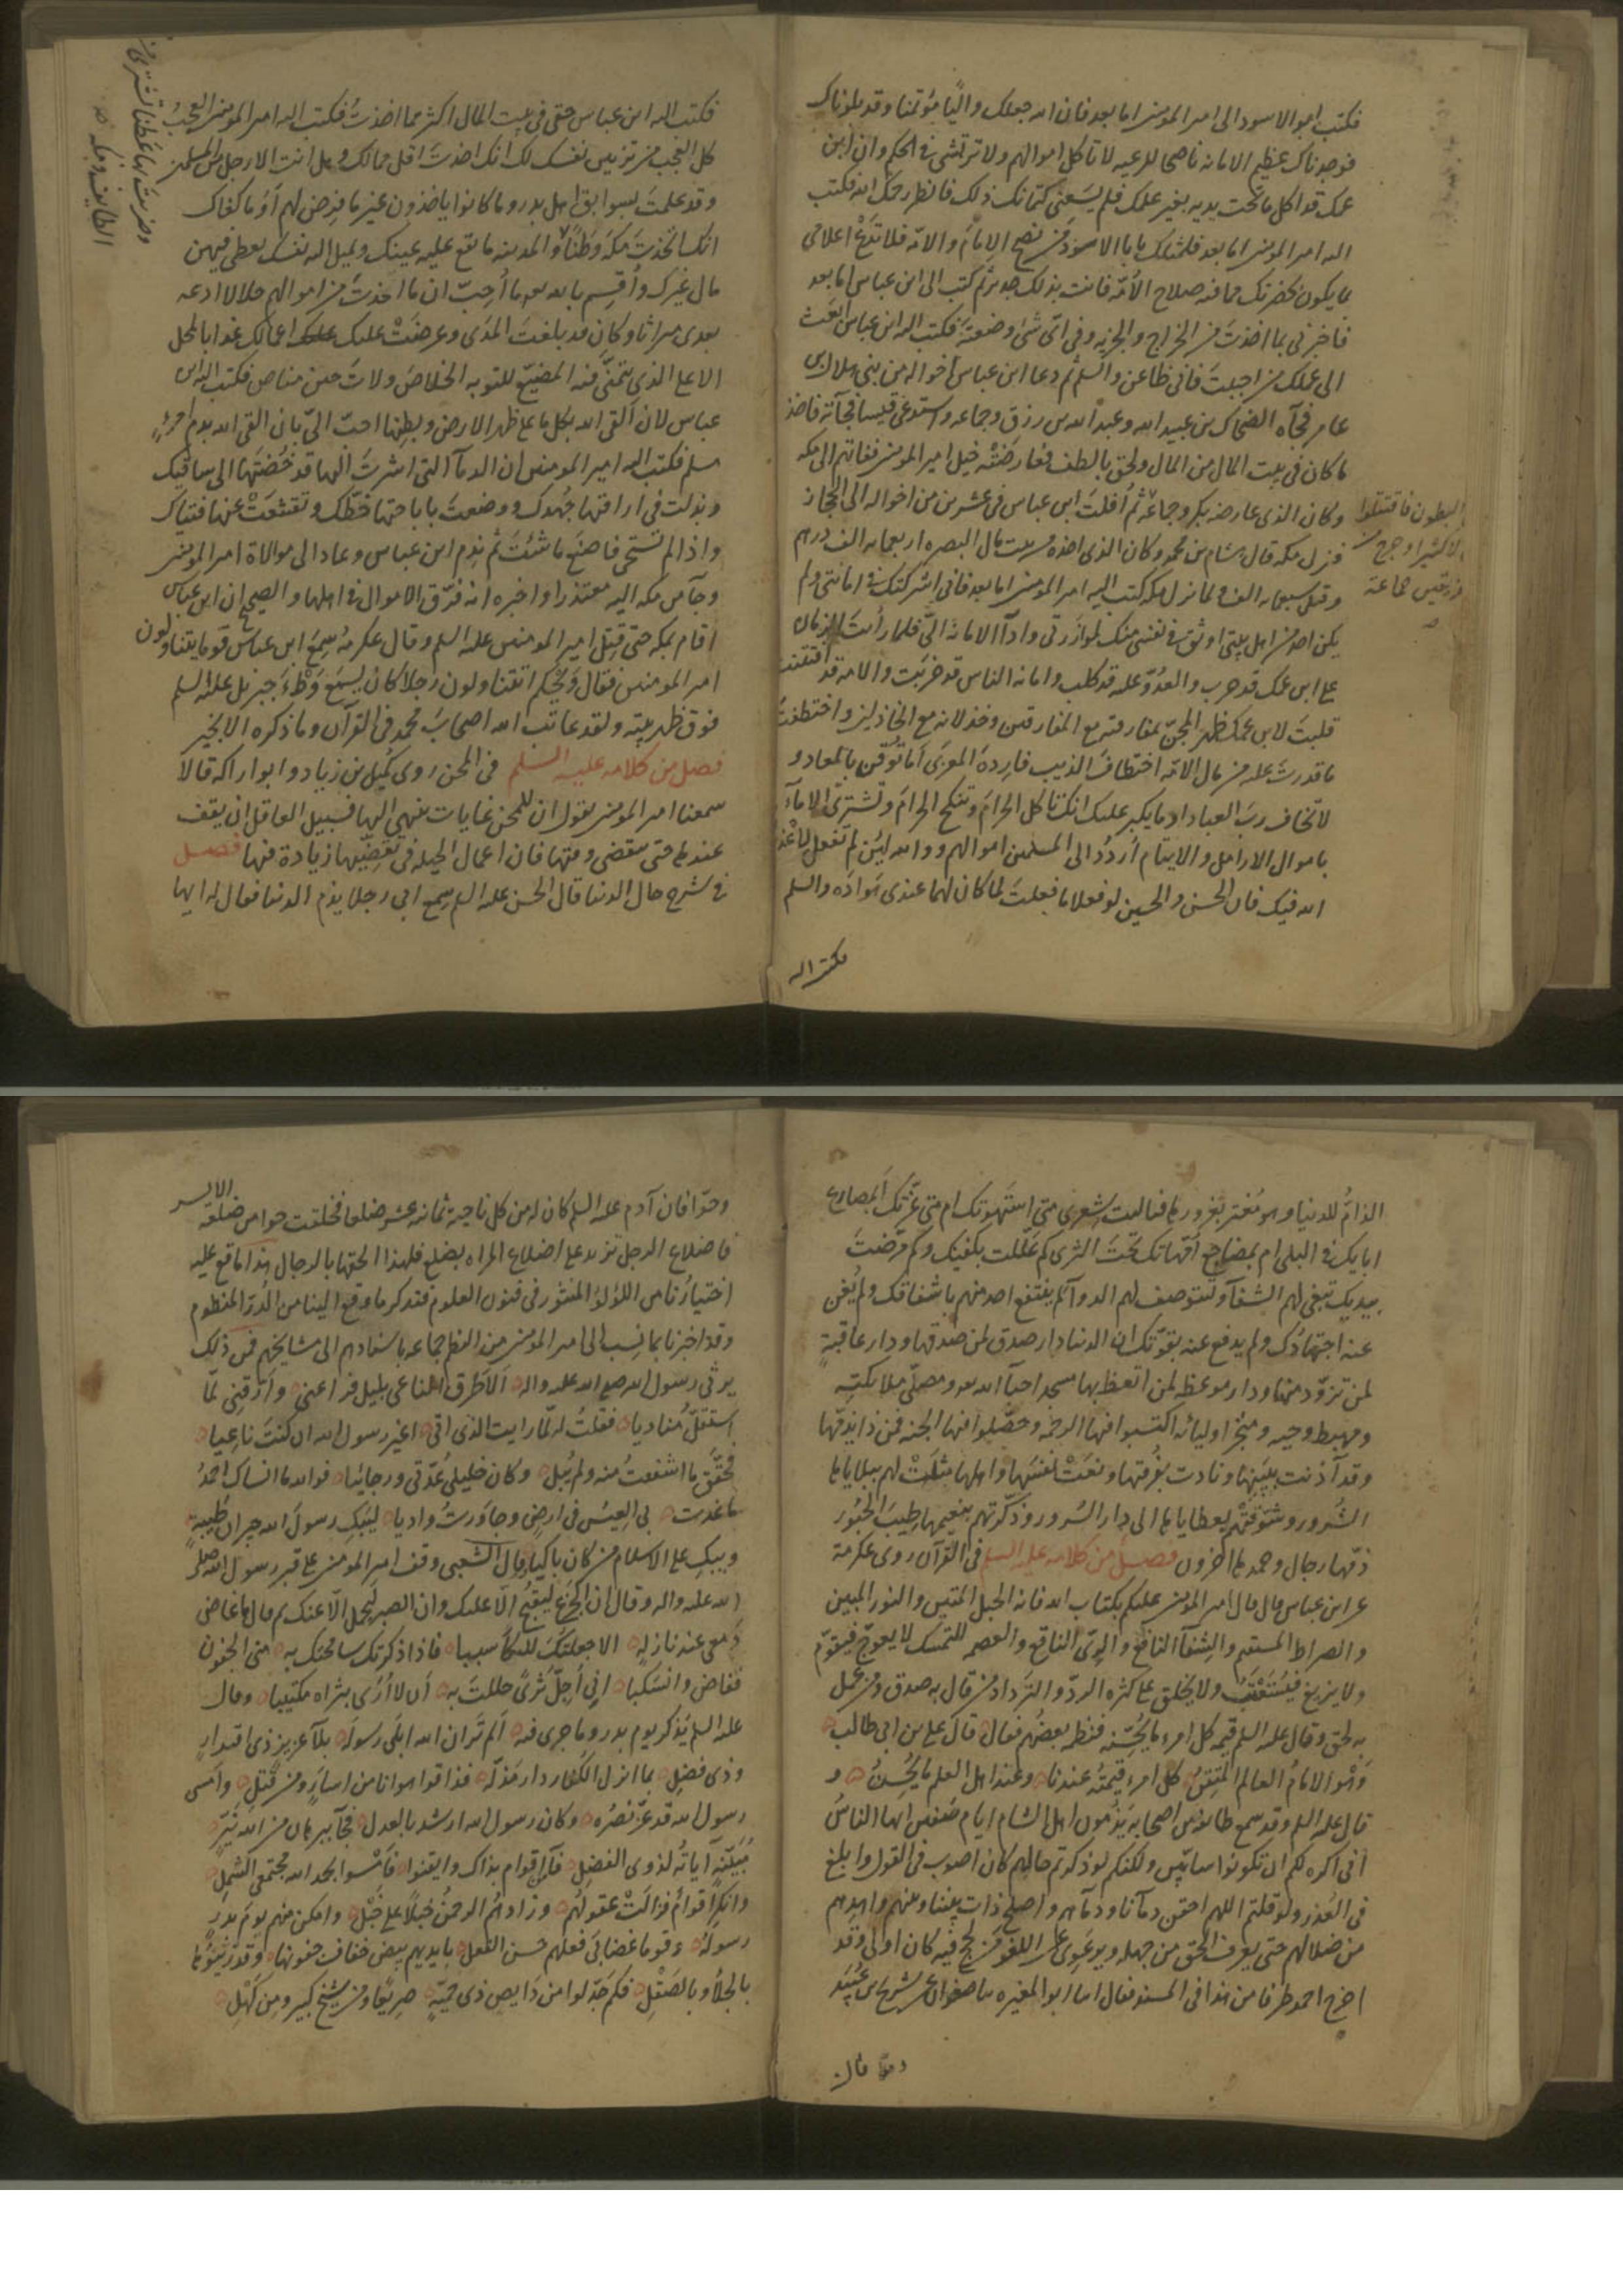 فكتب ابو الاسود الى امير المومنين اما بعد فان الله جعلك واليًا مؤتمنا وقد بلوناك
فوجدناك عظيم الامانه ناصحا للرعيه لا تاكل اموالهم ولا ترتشى فى الحكم وان ابن
عمك قد اكل ما تحت يديه بغير علمك فلم يسعنى كتمانك ذلك فانظر رحمك الله فكتب
اليه امير المومنين اما بعد فمثلك يابا الاسود من نصح الامام والامّه فلا تدع اعلامى
بما يكون بحضرتك مما فيه صلاح الامّه فانت بذلك جدير ثم كتب الى ابن عباس اما بعد
فاخبرنى بما اخذت من الخراج والجزيه وفى اىّ شىء وضعتَه فكتب اليه ابن عباس ابعَث
الى عملك من اجببت فانى ظاعن والسلم ثم دعا ابن عباس أخواله من بنى هلال بن
عامر فجآه الضحاك بن عبيد الله وعبد الله بن رزق وجماعه واستدعى قيسا فجآته فاخذ
ما كان فى بيت المال من المال ولحق بالطف فعارضَتْه خيل امير المومنين ففاتهم الى مكه
وكان الذى عارضه بكر وجماعة ثم أفلت ابن عباس فى عشرين من اخواله الى الحجاز
فنزل مكه قال هشام بن محمد وكان الذى اخذه من بيت مال البصره اربعمايه الف درهم
وقيل سبعمايه الف ولما نزل مكه كتب اليه امير المومنين اما بعد فانى اشركتك فى امانتى ولم
يكن احد من اهل بيتى اوثق فى نفسى منك لموازرتى وادآ الامانة الىّ فلما رأيت الزمان
على ابن عمك قد حرب والعدوّ عليه قد كلب وامانه الناس قد خربَت والامه قد افتتنت
قلبتَ لابن عمك ظهر المجنّ بمفارقته مع المفارقين وخذلانه مع الخاذلين واختطفت
ما قدرت عليه من مال الامّه اختطاف الذيب فاردة المعزى أما توقن بالمعاد و
لا تخاف ربّ العباد او ما يكبر عليك انك تاكل الحرامَ وتنكح الحرامَ وتشترى الامآء
باموال الارامل والايتام أردُد الى المسلمين اموالهم ووالله لئن لم تفعل لاعذرنّ
الله فيك فان الحسن والحسين لو فعلا ما فعلتَ لما كان لهما عندى هوادَه والسلم
فكتب اليه
البطون فاقتتلوا
فكتب اليه ابن عباس حقى فى بيت المال اكثر مما اخذتُ فكتب اليه امير المومنين العجبُ
كل العجب من تزيين نفسك لك انك اخذت اقل ممالك وهل انت الا رجل من المسلمين
وقد علمتَ بسوابق اهل بدر وما كانوا ياخذون غير ما فرض لهم أوَ ما كفاك
انك اتخذت مكة وطنًا والمدينه ما تقع عليه عينك وتميل اليه نفسك تعطى فيهن
مال غيرك وأقسِم بالله ربى ما أُحبّ ان ما اخذتَ من اموالهم حلالا ادعه
بعدى ميراثا وكان قد بلغتَ المدَى وعرضَتْ عليك اعمالك غدا بالمحل
الاعلى الذى يتمنّى فيه المضيع للتوبه الخلاصَ ولات حين مناص فكتب اليه ابن
عباس لان القى الله بكل ما على ظهر الارض وبطنها احبّ الىّ بان القى الله بدم امرئ
مسلم فكتب اليه امير المومنين ان الدمآ التى اشرتَ اليها قد خُضتَها الى ساقيك
وبذلت فى اراقتها جهدك ووضعتَ باباحتها حظك وتقشعَتْ عنها فتياك
واذا لم تستحى فاصنَع ما شئتَ ثم ندم ابن عباس وعاد الى موالاة امير المومنين
وجآ من مكه اليه معتذرا واخبره انه فرّق الاموال فى اهلها والصحيح ان ابن عباس
اقام بمكه حتى قتل امير المومنين عليه السلم وقال عكرمه سمع ابن عباس قوما يتناولون
امير المومنين فقال ويحكم اتتناولون رجلا كان يسمع وَطْءَ جبريل عليه السلم
فوق ظهر بيته ولقد عاتب الله اصحاب محمد فى القرآن وما ذكره الا بخير
فصل من كلامه عليه السلم فى المحن روى كميل بن زياد وابو اراكه قالا
سمعنا امير المومنين يقول ان للمحن غايات ينتهى اليها فسبيل العاقل ان يقف
عندها حتى ينقضى وقتها فان اعمال الحيله فى تقضيها زيادة فيها فصل
فى شرح حال الدنيا قال الحسن عليه السلم سمع ابى رجلا يذم الدنيا فقال له ايها
الذامّ للدنيا وهو مغتر بغرورها فياليت شعرى متى استهوتك ام متى غرّتك أبمصارع
ابايك فى البلى ام بمضاجع أمّهاتك تحت الثرى كم علّلت بكفيك وكم مرّضتَ
بيديك تبغى لهم الشفآ وتستوصف لهم الدوآ لم ينتفع احد منهم باشفاقك ولم يُغن
عنه اجتهادك ولم يدفع عنه بقوّتك ان الدنيا دار صدق لمن صدقها ودار عاقبةٍ
لمن تزوّد منها ودار موعظه لمن اتعظ بها مسجد احبآ الله ومصلّى ملايكته
ومهبط وحيه ومتجر اوليائه اكتسبوا فيها الرحمه وحصّلوا فيها الجنه فمن ذا يذمّها
وقد آذنت ببينها ونادت بفُرقتها ونعَتْ نفسَها واهلها مثلَتْ لهم ببلاياها
الشرور وشوّقتهم بعطاياها الى دار السرور وذكّرتهم بنعيمها طيبَ الحبُور
ذمّها رجال وحمدها اخرون فصل من كلامه عليه السلم فى القرآن روى عكرمة
عن ابن عباس قال قال امير المومنين عليكم بكتاب الله فانه الحبل المتين والنور المبين
والصراط المستقيم والشفآ النافع والرىّ الناقع والعصمه للتمسك لا يعوجّ فيقوّم
ولا يزيغ فيُستعتَب ولا يخلق على كثره الردّ والترداد من قال به صدق ومن عمل
به لحق وقال عليه السلم قيمه كل امرء ما يحسّنه فنظمه بعضهم فقال قال على بن ابى طالب
وَهْو الامامُ العالم المتقنُ كل امرء قيمتُه عندنا وعند اهل العلم ما يُحسنُ و
قال عليه السلم وقد سمع طائفه من اصحابه يذمون اهل الشام ايام صفين ايها الناسُ
انى اكره لكم ان تكونوا سبابين ولكنكم لو ذكرتم حالهم كان اصوب فى القول وابلغ
فى العُذر ولو قلتم اللهم احقن دمآنا ودمآهم واصلح ذات بيننا وبينهم واهدهم
من ضلالهم حتى يعرف الحق من جهله ويرعوى عن اللغو من لجّ فيه كان اولى وقد
اخرج احمد طرفا من هذا فى المسند فقال ابو المغيره صفوان عن شريح بن عبيد
قال
وحوّا فان آدم عليه السلم كان له من كل ناحية ثمانيه عشر ضلعا فخلقت حوا من ضلعه الايسر
فاضلاع الرجل تزيد على اضلاع المراه بضلع فلهذا الحقها بالرجال هذا ما وقع عليه
اختيارنا من اللؤلؤ المنثور فى فنون العلوم فنذكر ما وقع الينا من الدرّ المنظوم
وقد اخبرنا بما نسب الى امير المومنين من النظم جماعه باسنادهم الى مشايخهم فمن ذلك
يرثى رسول الله صلى الله عليه واله الا طرق الناعى بليل فراعنى وارّقنى لمّا
استقلّ مناديا فقلتُ له لمّا رايت الذى اتى اغير رسول الله ان كنتَ ناعيا
فحقّق ما اشفقتُ منه ولم يُبل وكان خليلى عُدّتى ورجائيا فوالله ما انساك احمدُ
ما غدت بى العيس فى ارضٍ وجاوَرتُ واديا ليبك رسولَ الله جيران طيبة
ويبك على الاسلام من كان باكيا وقال الشعبى وقف امير المومنين على قبر رسول الله صلى
الله عليه واله وقال ان الجزع ليقبُح الّا عليك وان الصبر ليجمل الّا عنك ثم قال ما غاض
دمعى عند نازلةٍ الا جعلتُكَ للبكا سببا فاذا ذكرتك سامحتك به منى الجفون
ففاض وانسكبا انى أجلّ ثرىً حللتَ به أن لا أُرَى بثراه مكتئبا وقال
عليه السلم يذكر يوم بدر وما جرى فيه ألم تَرَ ان الله ابلَى رسولَه بلآء عزيز ذى اقتدارٍ
وذى فضلِ بما انزل الكفار دار مذلّةٍ فذاقوا هوانا من اسارٍ ومن قتلِ وامسى
رسول الله قد عزّ نصرُه وكان رسول الله ارشد بالعدل فجآ ببرهان من الله نيّر
مبيّنةٍ آياتُه لذوى الفضلِ فآمن اقوام بذاك وايقنوا فامسوا بحمد الله مجتمعى الشملِ
وانكر اقوامٌ فزالت عقولهم وزادهُم الرحمنُ خبلًا على خبْلِ وامكن منهم يومَ بدرٍ
رسولَه وقوما غضابى فعلهم حسن الفعلِ بايديهم بيض خفاف جفونها وقد زيّنوها
بالجلآ وبالصَقْلِ فكم جدّلوا من ذى حميّةٍ صريعًا ومن شيخٍ كبيرٍ ومن كهْلِ